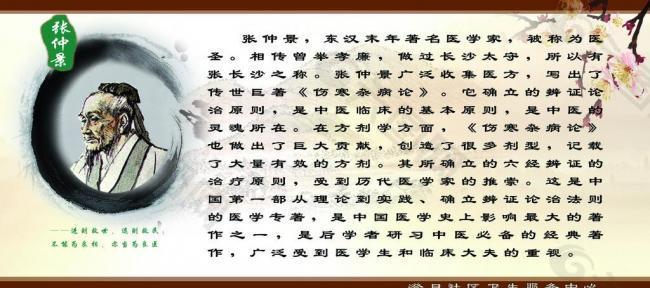 张仲景
张仲景，东汉末年著名医学家，被称为医
圣。相传曾举孝廉，做过长沙太守，所以有
张长沙之称。张仲景广泛收集医方，写出了
传世巨著《伤寒杂病论》。它确立的辨证论
治原则，是中医临床的基本原则，是中医的
灵魂所在。在方剂学方面，《伤寒杂病论》
也做出了巨大贡献，创造了很多剂型，记载
了大量有效的方剂。其所确立的六经辨证的
治疗原则，受到历代医学家的推崇。这是中
国第一部从理论到实践、确立辨证论治法则
的医学专著，是中国医学史上影响最大的著
作之一，是后学者研习中医必备的经典著
作，广泛受到医学生和临床大夫的重视。
——进则救世，退则救民；
不能为良相，亦当为良医